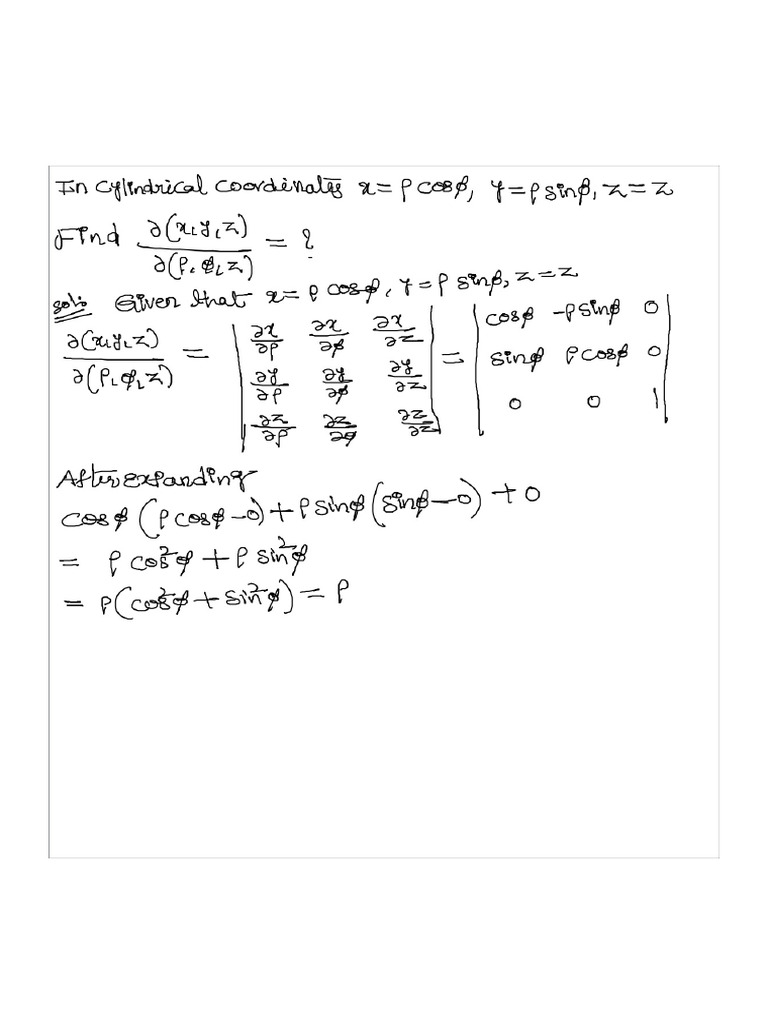 In cylindrical coordinates x = ρ cosϕ, y = ρ sinϕ, z = z
Find ∂(x,y,z)/∂(ρ,ϕ,z) = ?
Sol: Given that x = ρ cosϕ, y = ρ sinϕ, z = z
∂(x,y,z)/∂(ρ,ϕ,z) = | ∂x/∂ρ ∂x/∂ϕ ∂x/∂z | = | cosϕ -ρsinϕ 0 |
| ∂y/∂ρ ∂y/∂ϕ ∂y/∂z | | sinϕ ρcosϕ 0 |
| ∂z/∂ρ ∂z/∂ϕ ∂z/∂z | | 0 0 1 |
After expanding
cosϕ (ρ cosϕ - 0) + ρ sinϕ (sinϕ - 0) + 0
= ρ cos²ϕ + ρ sin²ϕ
= ρ(cos²ϕ + sin²ϕ) = ρ